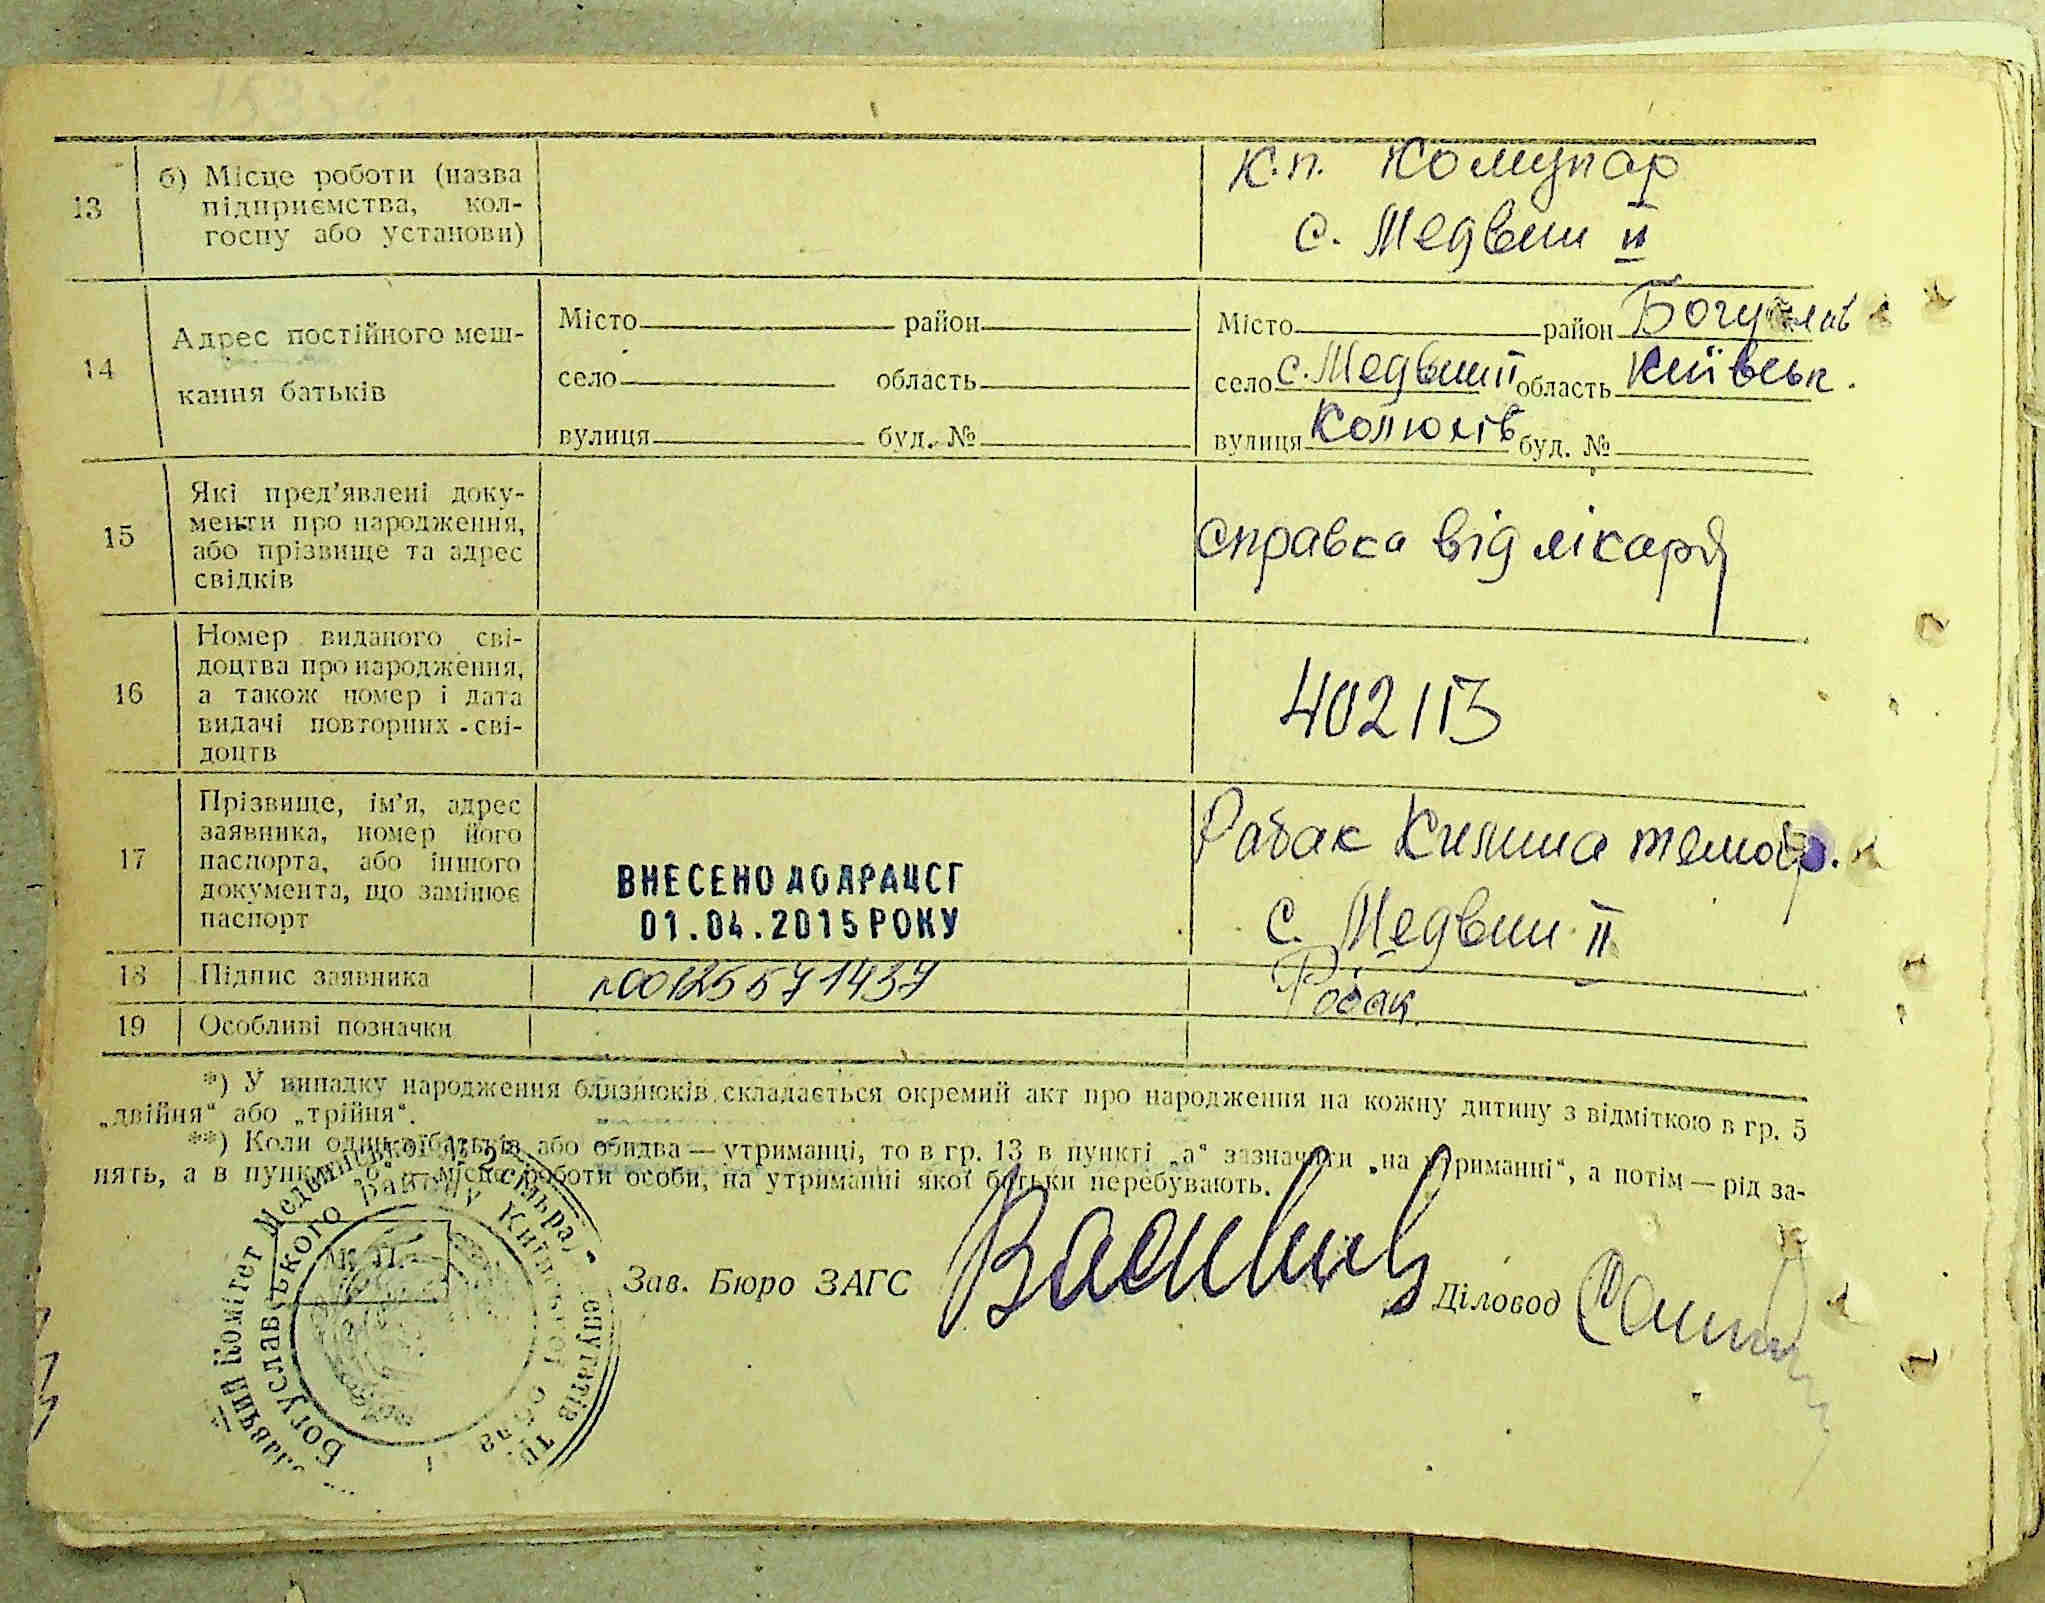 13
б) Місце роботи (назва
підприємства, кол-
госпу або установи)
к.п. Комунар
с. Медвин ІІ
14
Адрес постійного меш-
кання батьків
Місто район
село область
вулиця буд. №
Місто район Богуслав
село с. Медвин ІІ область Київськ.
вулиця буд. №
15
Які пред'явлені доку-
менти про народження,
або прізвище та адрес
свідків
справка від лікаря
16
Номер виданого сві-
доцтва про народження,
а також номер і дата
видачі повторних сві-
доцтв
17
Прізвище, ім'я, адрес
заявника, номер його
паспорта, або іншого
документа, що замінює
паспорт
ВНЕСЕНО ДО ДРАЦСГ
01.04.2015 РОКУ
Рабак Килина
с. Медвин ІІ
18
Підпис заявника
00125571437
Рабак
19
Особливі позначки
*) У випадку народження близнюків складається окремий акт про народження на кожну дитину з відміткою в гр. 5
„двійня“ або „трійня“.
**) Коли один із батьків або обидва — утриманці, то в гр. 13 в пункті „а“ зазначити „на утриманні“, а потім — рід за-
нять, а в пункті „б“ — місце роботи особи, на утриманні якої батьки перебувають.
Зав. Бюро ЗАГС
Діловод
Комітет
Богуславського району Київської